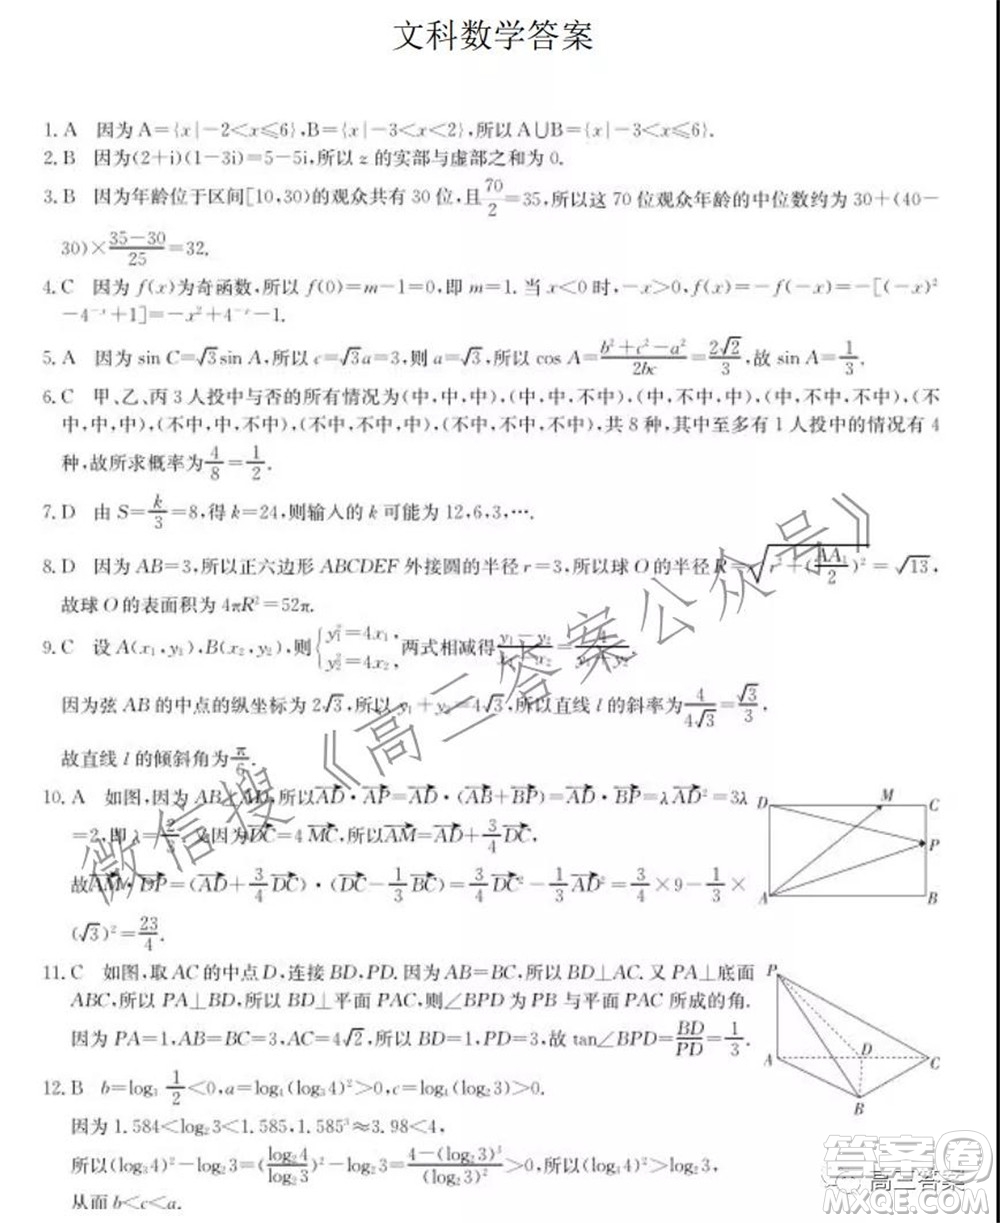 文科数学答案
1. A 因为 A={x|-2<x≤6},B={x|-3<x<2},所以 A∪B={x|-3<x≤6}.
2. B 因为(2+i)(1-3i)=5-5i,所以 z 的实部与虚部之和为 0.
3. B 因为年龄位于区间[10,30)的观众共有 30 位,且70/2=35,所以这 70 位观众年龄的中位数约为 30+(40-
30)×(35-30)/25=32.
4. C 因为 f(x)为奇函数,所以 f(0)=m-1=0,即 m=1. 当 x<0 时,-x>0,f(x)=-f(-x)=-[(-x)²
-4⁻ˣ+1]=-x²+4⁻ˣ-1.
5. A 因为 sin C=√3sin A,所以 c=√3a=3,则 a=√3,所以 cos A=(b²+c²-a²)/2bc=2√2/3,故 sin A=1/3.
6. C 甲、乙、丙 3 人投中与否的所有情况为(中,中,中),(中,中,不中),(中,不中,中),(中,不中,不中),(不
中,中,中),(不中,中,不中),(不中,不中,中),(不中,不中,不中),共 8 种,其中至多有 1 人投中的情况有 4
种,故所求概率为4/8=1/2.
7. D 由 S=k/3=8,得 k=24,则输入的 k 可能为 12,6,3,….
8. D 因为 AB=3,所以正六边形 ABCDEF 外接圆的半径 r=3,所以球 O 的半径 R=√(r²+(AA₁/2)²)=√13,
故球 O 的表面积为 4πR²=52π.
9. C 设 A(x₁,y₁),B(x₂,y₂),则{y₁²=4x₁, y₂²=4x₂, 两式相减得(y₁-y₂)/(x₁-x₂)=4/(y₁+y₂).
因为弦 AB 的中点的纵坐标为 2√3,所以 y₁+y₂=4√3,所以直线 l 的斜率为4/4√3=√3/3,
故直线 l 的倾斜角为π/6.
10. A 如图,因为 AB⊥AD,所以AD·AP=AD·(AB+BP)=AD·BP=λAD²=3λ
=2,即 λ=2/3. 又因为DC=4MC,所以AM=AD+3/4DC,
故AM·DP=(AD+3/4DC)·(DC-1/3BC)=3/4DC²-1/3AD²=3/4×9-1/3×
(√3)²=23/4.
D M C P A B
11. C 如图,取 AC 的中点 D,连接 BD,PD. 因为 AB=BC,所以 BD⊥AC. 又 PA⊥底面
ABC,所以 PA⊥BD,所以 BD⊥平面 PAC,则∠BPD 为 PB 与平面 PAC 所成的角.
因为 PA=1,AB=BC=3,AC=4√2,所以 BD=1,PD=3,故 tan∠BPD=BD/PD=1/3.
P A D C B
12. B b=log₃1/2<0,a=log₃(log₃4)²>0,c=log₄(log₂3)>0.
因为 1.584<log₂3<1.585,1.585³≈3.98<4,
所以(log₃4)²-log₂3=(log₂4/log₂3)²-log₂3=(4-(log₂3)³)/(log₂3)²>0,所以(log₃4)²>log₂3,
从而 b<c<a.
微信搜《高三答案公众号》
答案圈
高三答案
MXQE.COM